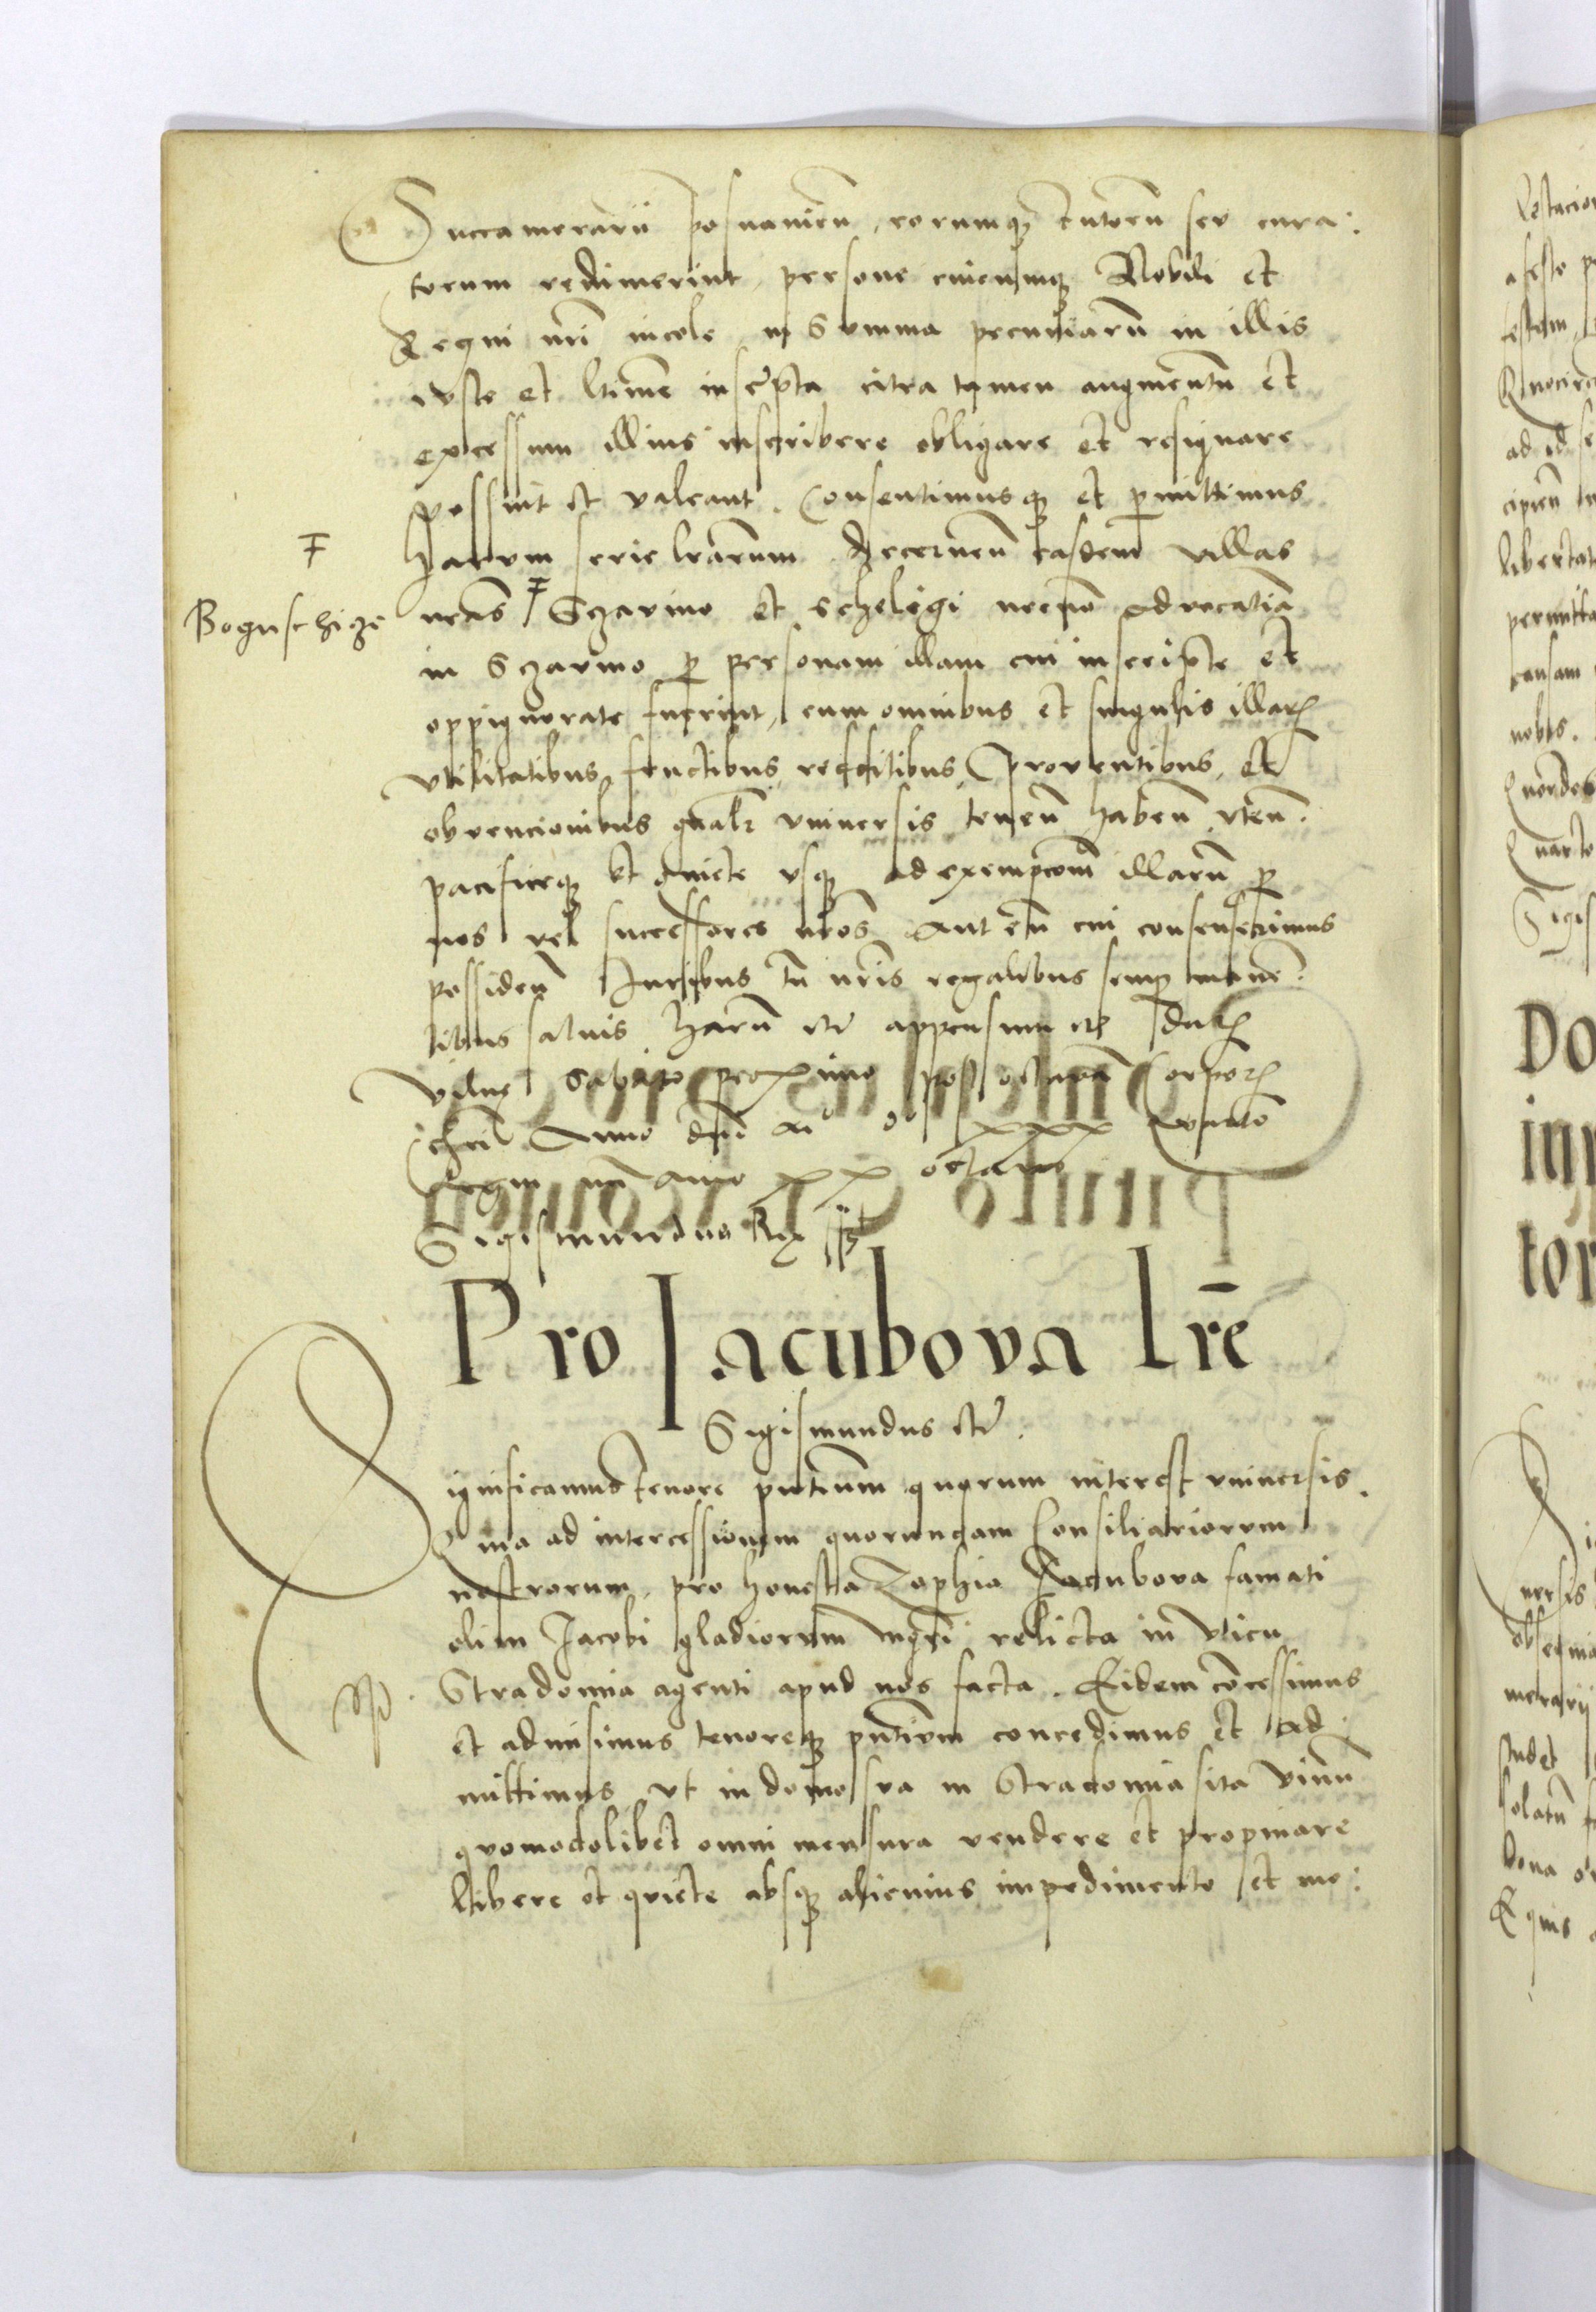 Succamerarii posnanien, eorumq3 tutorũ seu cura:
torum redimerint, persone cuicumq3 Nobili et
Regni nri incole in Summa pecuniarũ in illis
iuste et ltime inscrpta citra tamen augmentũ et
excessum illius inscribere obligare et resignare
possint et valeant. Consentimusq3 et pmittimus
harum serie lrarum decernen easdem villas
Boguschicze
nras Szarmo et Schelegi necnõ advocatiã
in Szarmo p personam illam cui inscripte et
oppignorate fuerint, cum omnibus et singulis illar
utilitatibus fructibus redditibus proventibus et
obvencionibus gnalr universis tenen haben uten.
pacificeq3 et quiete usq3 ad exempcõm illarũ p
nos vel successores nros aut eũ cui consenserimus
possiden Juribus tñ nris regalibus semp manen:
tibus salvis harũ etc appensum etc dat
vilne Sabato proximo post octavã Corporis
chri Anno dni M° d° xxxiiii Regni vero
Regni nri anno xx octavo
Sigismundus Rex sst
Pro Jacubova lre
Sigismundus etc.
Significamus tenore pntium quorum interest universis.
Quia ad intercessionem quorundam Consiliariorum
nostrorum, pro honesta Zophia Jacubova famati
olim Jacobi gladiorum mgri relicta in vico
Stradomia agenti apud nos facta. Eidem cõcessimus
et admisimus tenoreq3 pntium concedimus et ad:
mittimus ut in domo sua in Stradomia sita vinũ
quomodolibet omni mensura vendere et propinare
libere et quiete absq3 alicuius impedimento et mo: